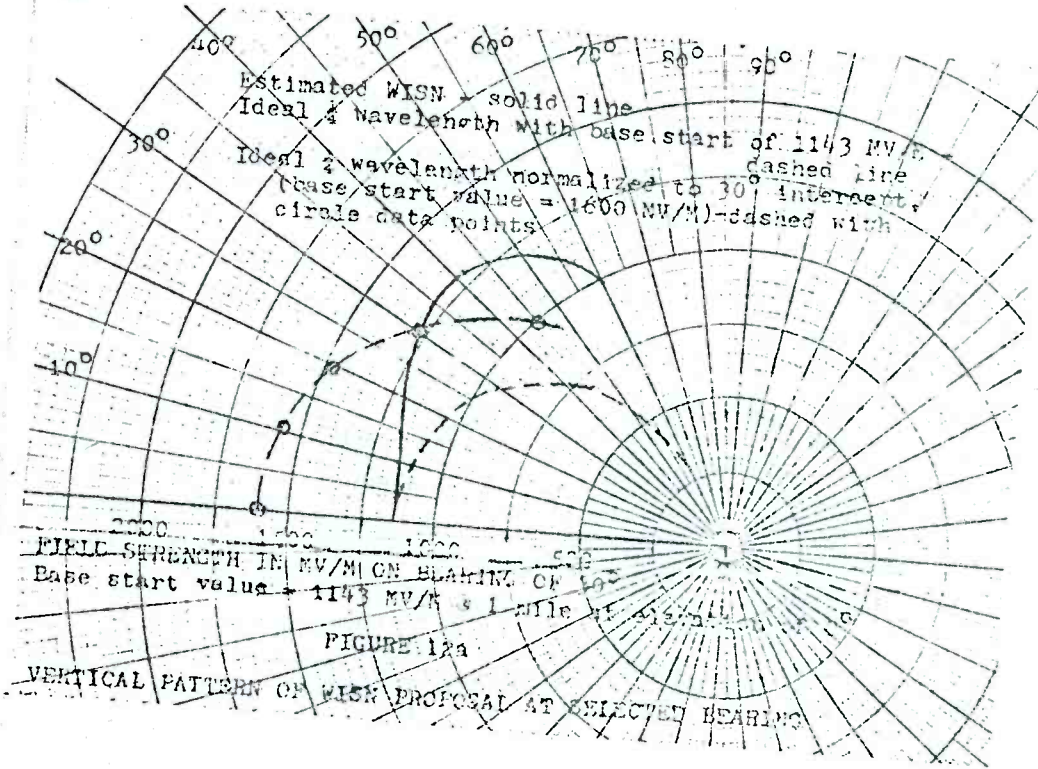 40° 50° 60° 70° 80° 90°
Estimated WISN - solid line
Ideal ¼ wavelength with base start of 1143 MV/M -
dashed line
30°
Ideal ¼ wavelength normalized to 30° intercept,
(base start value = 1600 MV/M)-dashed with
circle data points
20°
10°
2000 1500 1000 500
FIELD STRENGTH IN MV/M ON BEARING OF
Base start value = 1143 MV/M @ 1 mile at
FIGURE 12a
VERTICAL PATTERN OF WISN PROPOSAL AT SELECTED BEARING